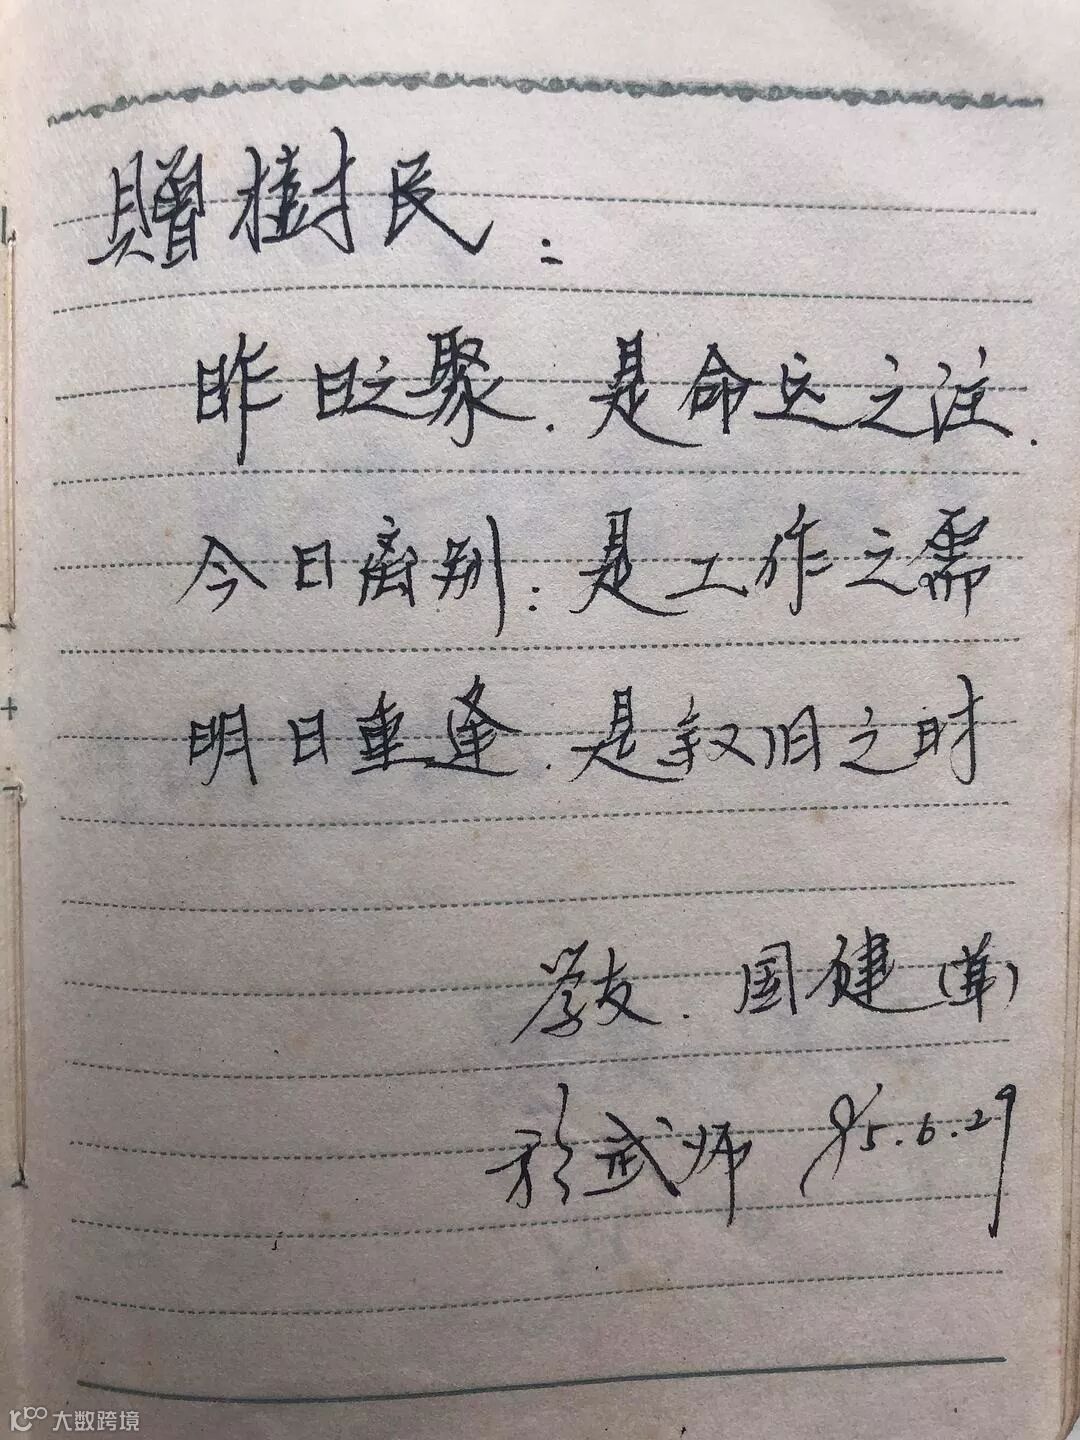 贈樹民：
昨日之聚．是命运之注．
今日离别：是工作之需
明日重逢．是叙旧之时
学友．国健（華）
於武师 95.6.29
大数跨境